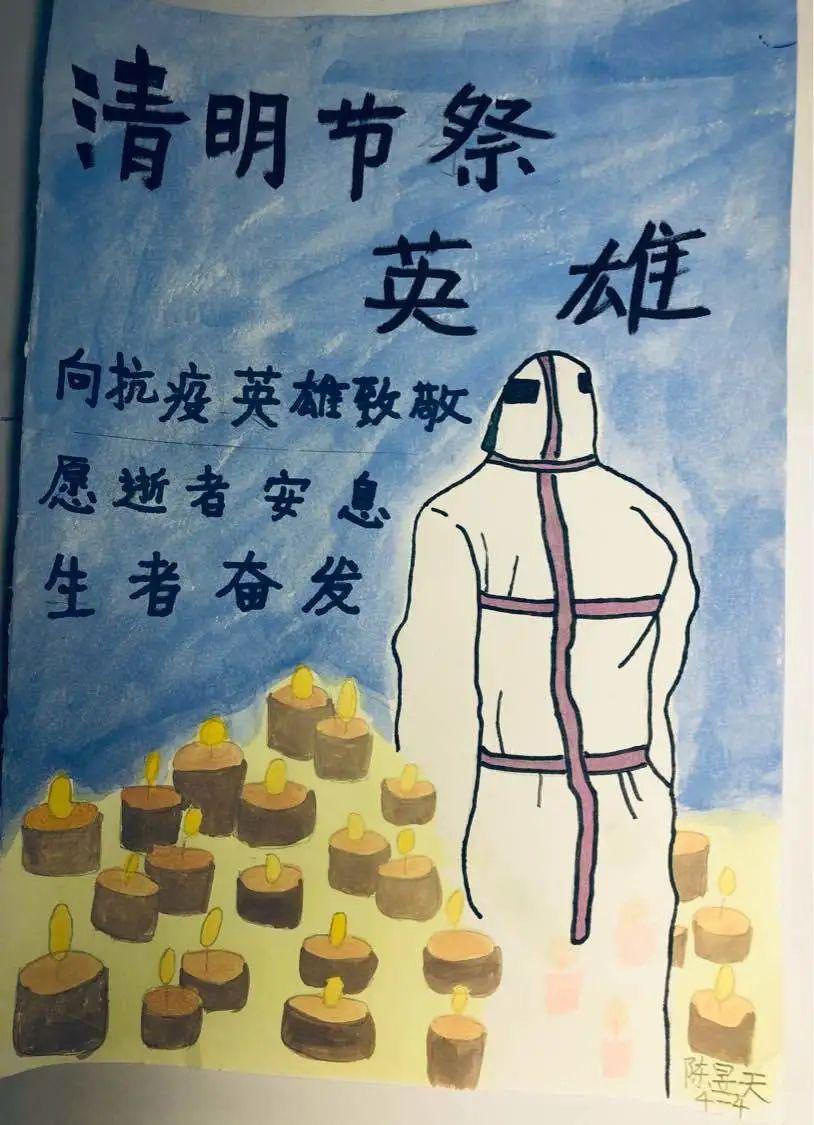 清明节祭
英雄
向抗疫英雄致敬
愿逝者安息
生者奋发
陈昱天
4-4